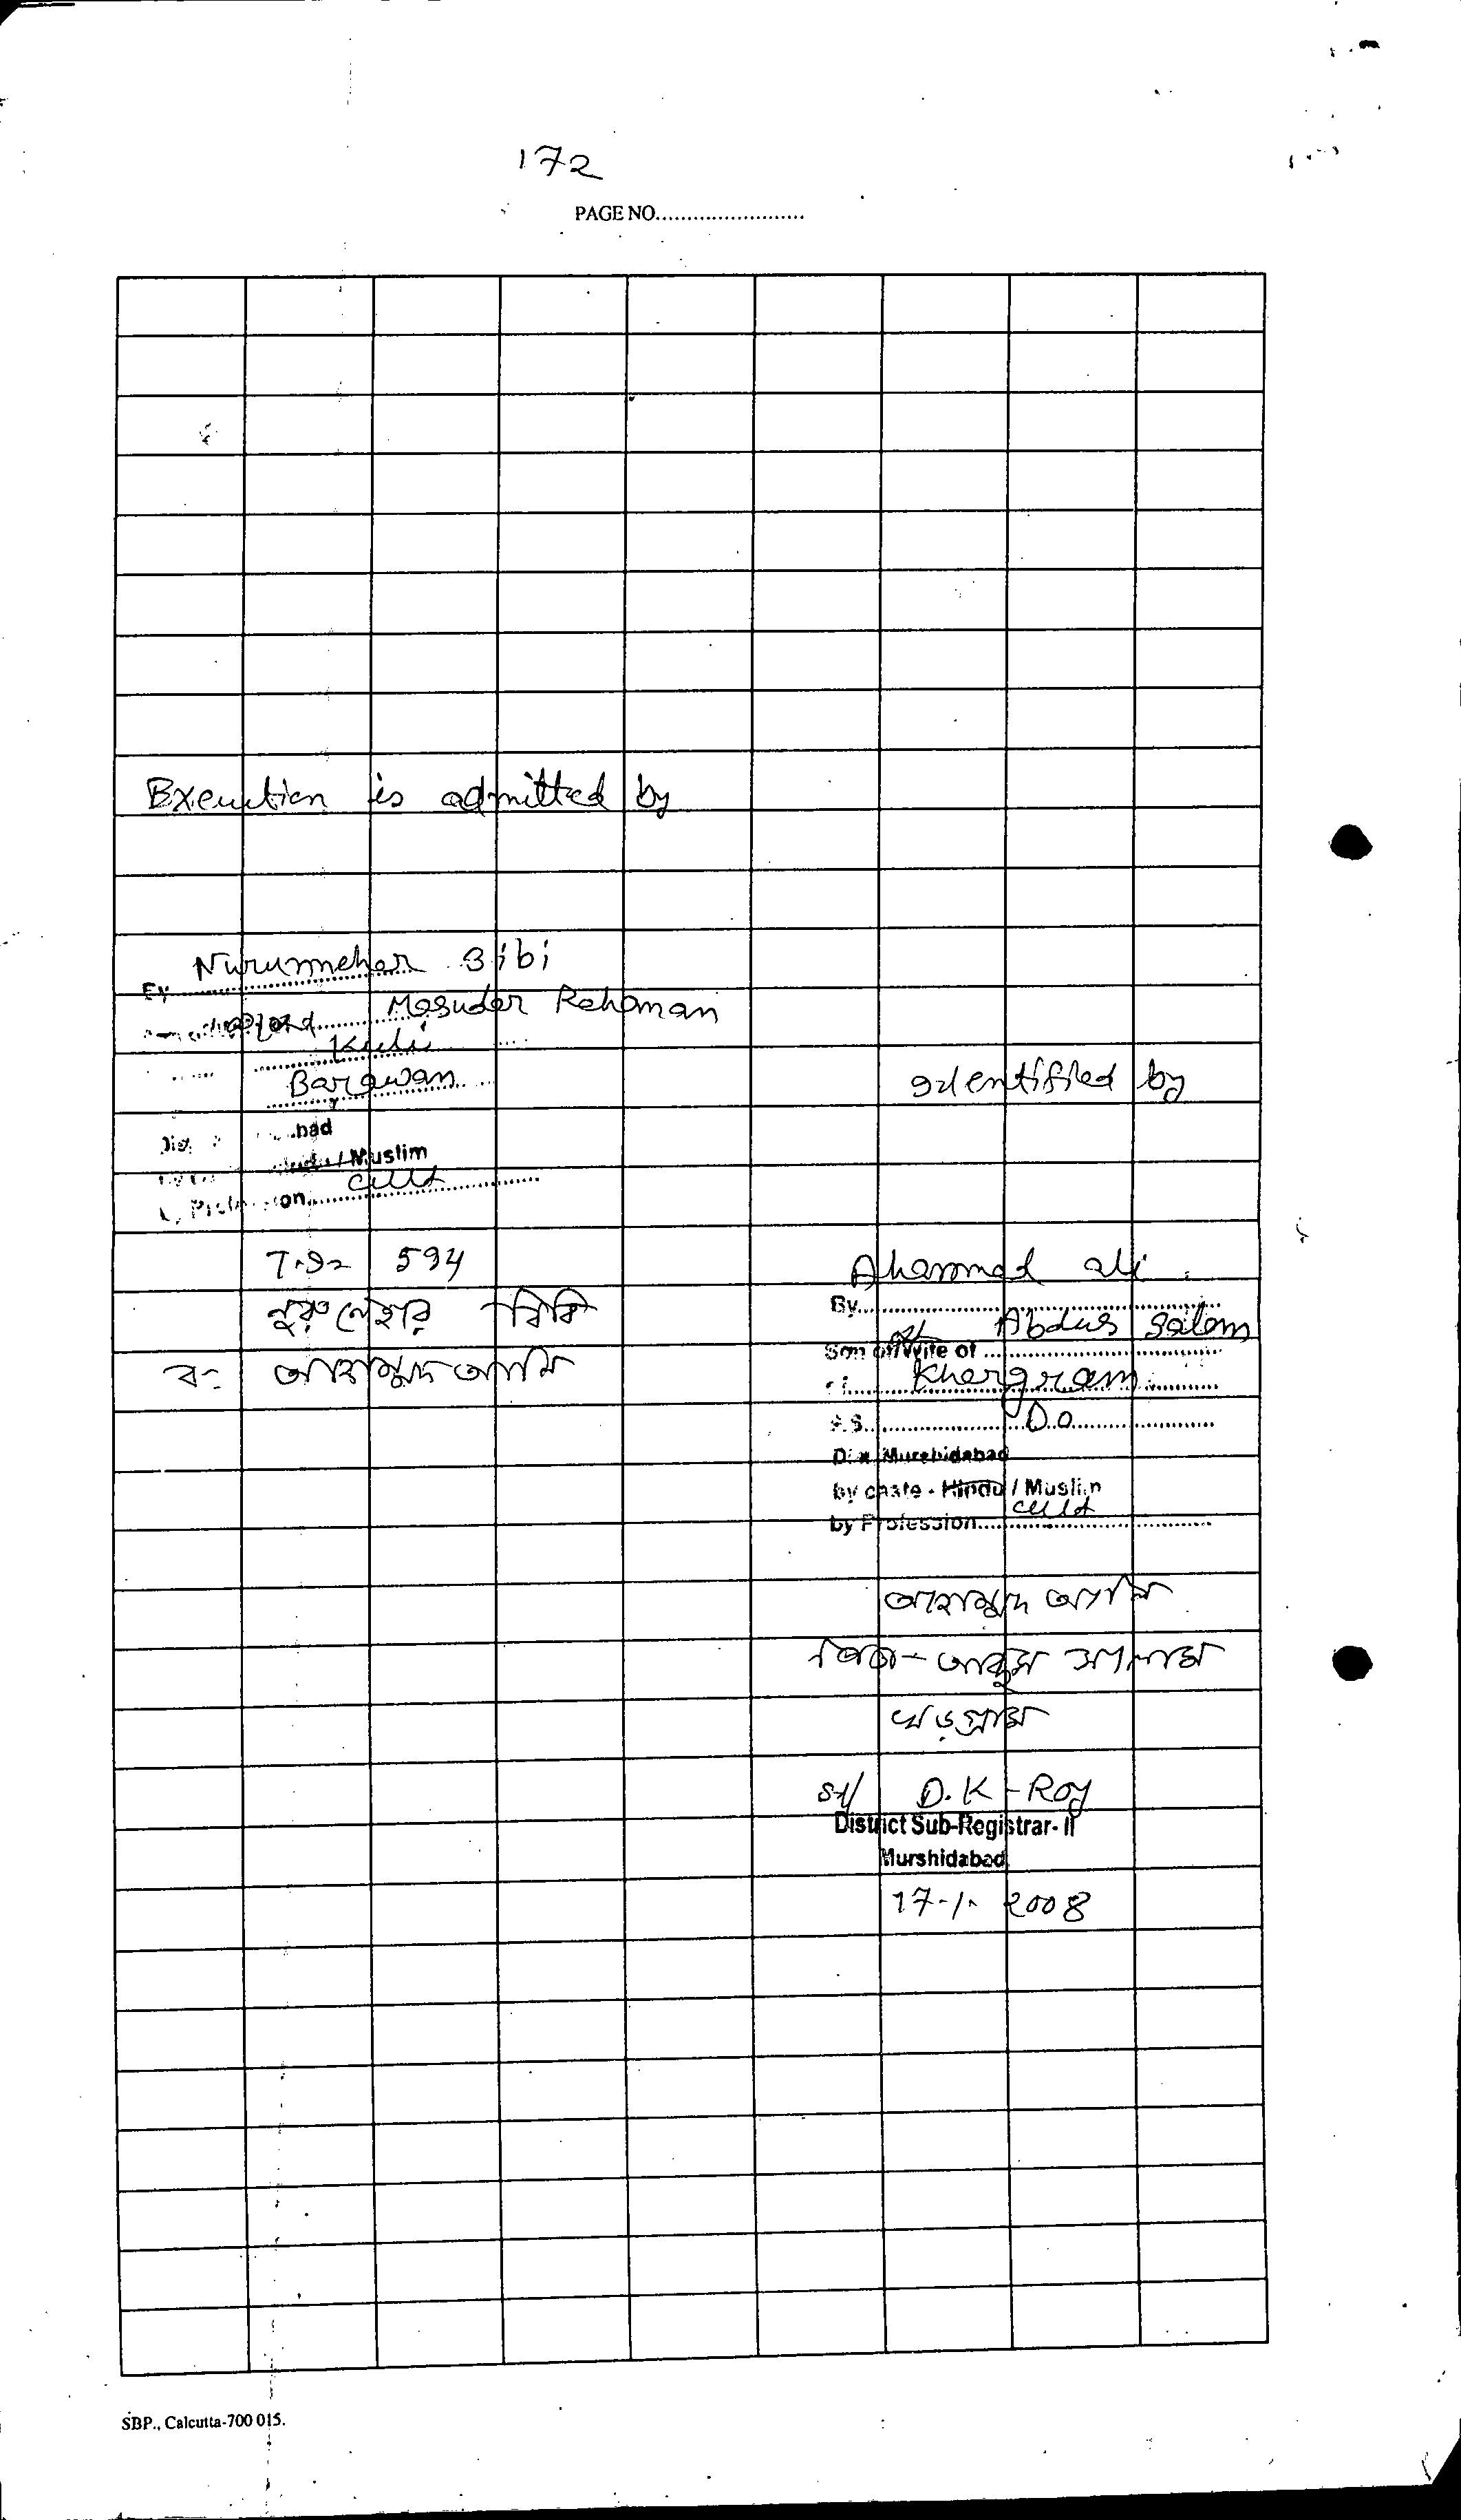 172
PAGE NO.........................
Execution is admitted by
Nurunnehar Bibi
By
Masudar Rahaman
Kuli
Barawan
Identified by
bad
/ Muslim
Profession cult
594
নুরুন্নেহার বিবি
ব: আহাম্মদ আলি
Ahammad ali
By
Abdus Salam
Son of/Wife of
Khargram
P.S. Do
Dist Murshidabad
by caste - Hindu / Muslim
by Profession cult
আহাম্মদ আলি
পিতা- আব্দুস সালাম
খড়গ্রাম
Sd/ D.K-Roy
District Sub-Registrar-II
Murshidabad
17-1-2008
SBP., Calcutta-700 015.